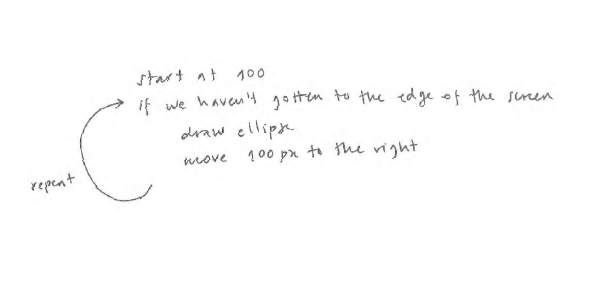 start at 100
if we haven't gotten to the edge of the screen
draw ellipse
move 100 px to the right
repeat